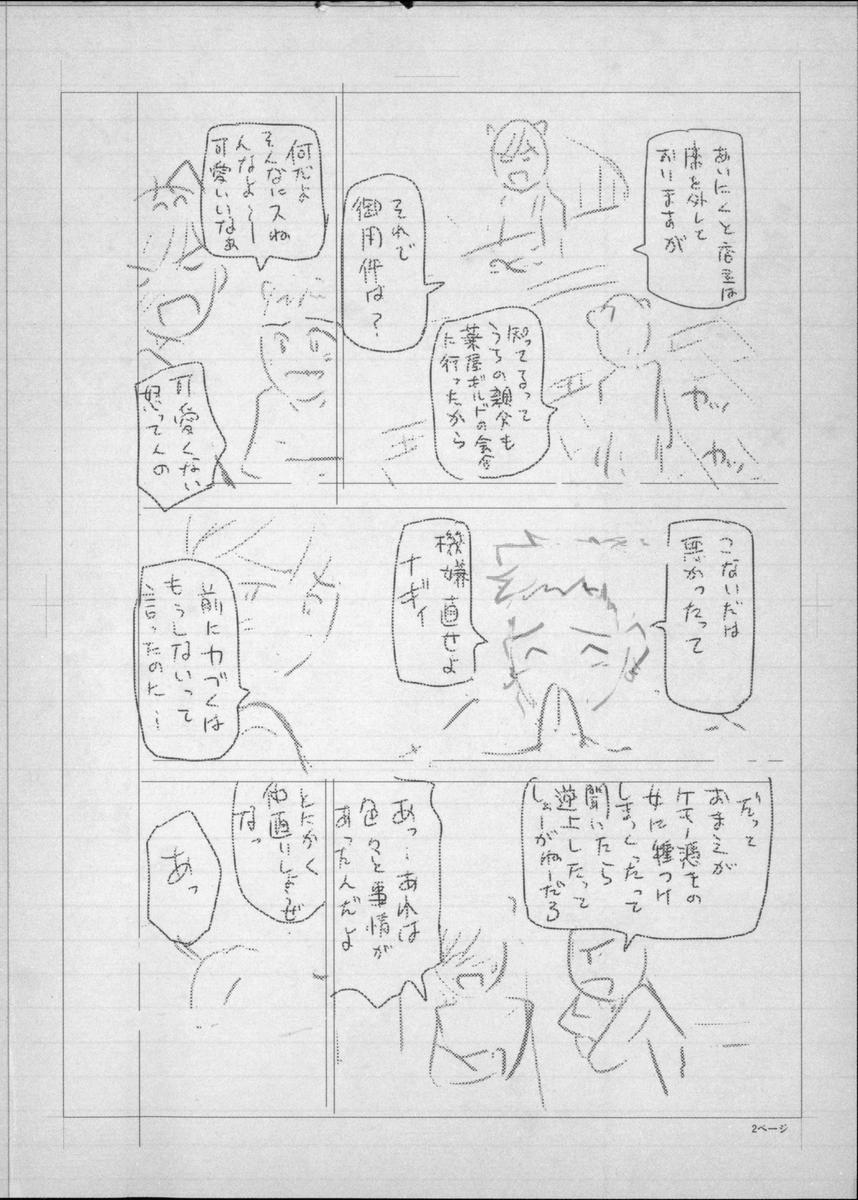 あいにくと店主は
席を外して
おりますが
知ってるって
うちの親父も
薬屋ギルドの会合
に行ったから
カッ
カッ
それで
御用件は？
何だよ
そんなにスね
んなよ〜
可愛いいなぁ
可愛くない
怒ってんの
こないだは
悪かったって
機嫌直せよ
ナギィ
前に力づくは
もうしないって
言ったのに…
だって
おまえが
ケモノ憑きの
女に種つけ
しまくったって
聞いたら
逆上したって
しょーがねーだろ
あっ…あれは
色々と事情が
あったんだよ
とにかく
仲直りしようぜ
なっ
あっ
2ページ